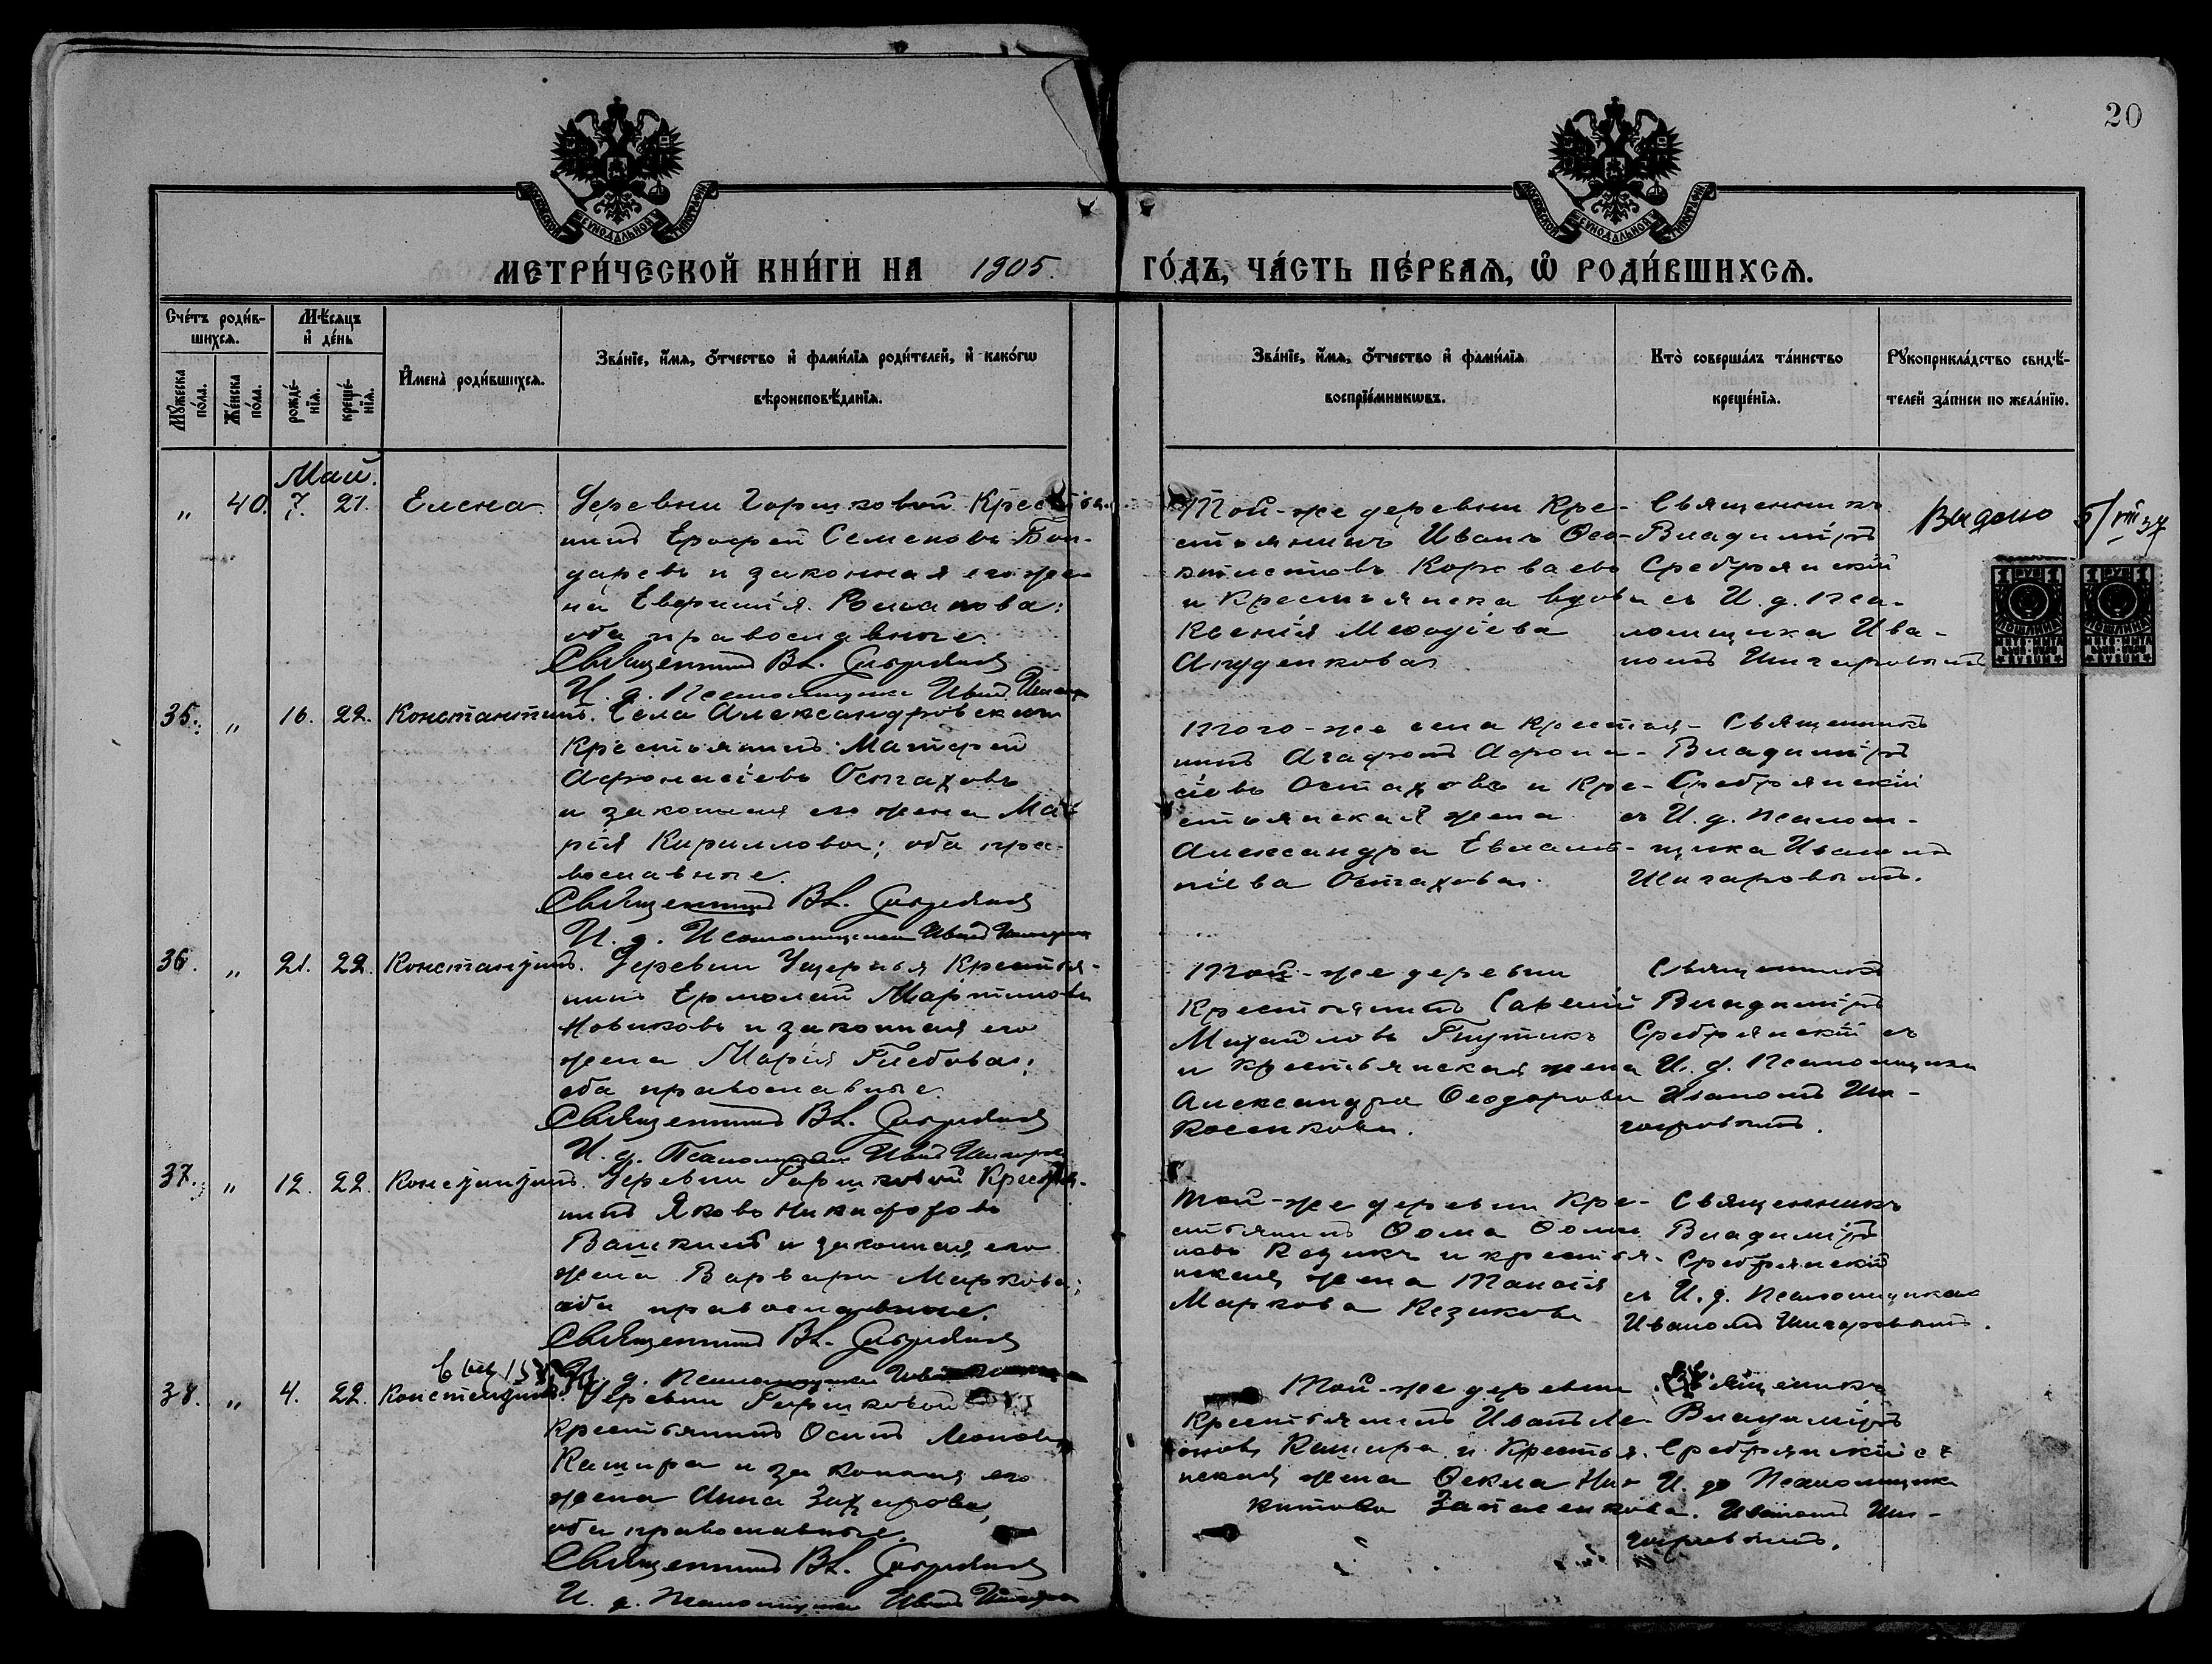 20
МЕТРИ́ЧЕСКОЙ КНИ́ГИ НА 1905. ГО́ДЪ, ЧА́СТЬ ПЕ́РВАЯ, Ѡ҆ РОДИ́ВШИХСЯ.
Сче́тъ роди́в-
шихся.
Мѣ́сяцъ
и҆ де́нь
Мꙋ́жеска
по́ла.
Же́нска
по́ла.
рожде́-
нїя.
креще́-
нїя.
И҆мена̀ роди́вшихся.
Зва́нїе, и҆́мя, ѻ҆́тчество и҆ фами́лїя роди́телей, и҆ како́гѡ
вѣроисповѣ́данїя.
Зва́нїе, и҆́мя, ѻ҆́тчество и҆ фами́лїя
воспрїе́мникѡвъ.
Кто̀ соверша́лъ та́инство
креще́нїя.
Рꙋкоприкла́дство свидѣ́-
телей за́писи по жела́нїю.
Май.
„ 40. 7. 21. Елена.
Деревни Горшковой Крестья-
нинъ Ерофей Семеновъ Бон-
даревъ и законная его же-
на Евфимія Романова:
оба православные.
Священникъ Вл. Сребрянскій
И. д. Псаломщика Иванъ
Той-же деревни Кре-
стьянинъ Иванъ Ѳео-
ктистовъ Коржаевъ
и Крестьянска вдова
Ксенія Меѳодіева
Священникъ
Владиміръ
Сребрянскій
съ И. д. Пса-
ломщика Ива-
номъ Шигаровымъ
Выдано 5/VIII 37
1 РУБ 1
1 РУБ 1
35. „ 16. 22. Константинъ.
Села Александровскаго
Крестьянинъ Матфей
Афонасіевъ Остаховъ
и законная его жена Ма-
рія Кириллова; оба пра-
вославные.
Священникъ Вл. Сребрянскій
И. д. Псаломщика Иванъ
Того-же села Крестья-
нинъ Агафонъ Афона-
сіевъ Остаховъ и Кре-
стьянская жена
Александра Евлам-
піева Остахова.
Священникъ
Владиміръ
Сребрянскій
съ И. д. Псалом-
щика Иваномъ
Шигаровымъ.
36. „ 21. 22. Константинъ.
Деревни Ущерпья Крестья-
нинъ Ермолай Мартиновъ
Новиковъ и законная его
жена Марія Глебова;
оба православные.
Священникъ Вл. Сребрянскій
И. д. Псаломщика Иванъ
Той-же деревни
Крестьянинъ
Михайловъ
и крестьянская жена
Александра Ѳеодорова
Косенкова.
Священникъ
Владиміръ
Сребрянскій съ
И. д. Псаломщика
Иваномъ Ши-
гаровымъ.
37. „ 12. 22. Константинъ.
Деревни Горшковой Крестья-
нинъ Яковъ Никифоровъ
и законная его
жена Варвара Маркова;
оба православные.
Священникъ Вл. Сребрянскій
И. д. Псаломщика
Той-же деревни Кре-
стьянинъ Ѳома
и крестья-
нская жена Таисія
Маркова
Священникъ
Владиміръ
Сребрянскій
съ И. д. Псаломщикомъ
Иваномъ Шигаровымъ.
38. „ 4. 22. Константинъ.
Деревни Горшковой
Крестьянинъ Осипъ Леоновъ
Кашира и законная его
жена Анна Захарова,
оба православные.
Священникъ Вл. Сребрянскій
И. д. Псаломщика Иванъ
Той-же деревни
Крестьянинъ Иванъ Ле-
оновъ Кашира и Крестья-
нская жена Ѳекла Ни-
китова
Священникъ
Владиміръ
Сребрянскій съ
И. д. Псаломщика
Иваномъ Ши-
гаровымъ.